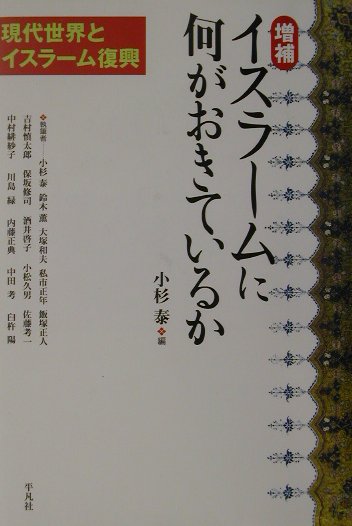 現代世界と
イスラーム復興
増補
イスラームに
何がおきているか
小杉 泰❖編
❖執筆者――小杉 泰 鈴木 薫 大塚和夫 私市正年 飯塚正人
吉村慎太郎 保坂修司 酒井啓子 小松久男 佐藤考一
中村緋紗子 川島 緑 内藤正典 中田 考 臼杵 陽
平凡社